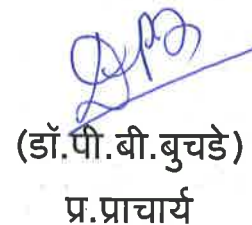 (डॉ.पी.बी.बुचडे)
प्र.प्राचार्य